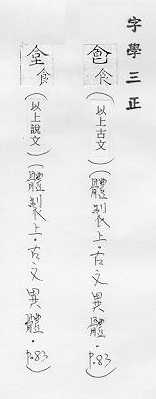 字學三正
(以上古文)(體製上·古文異體·p.83)
(以上說文)(體製上·古文異體·p.83)